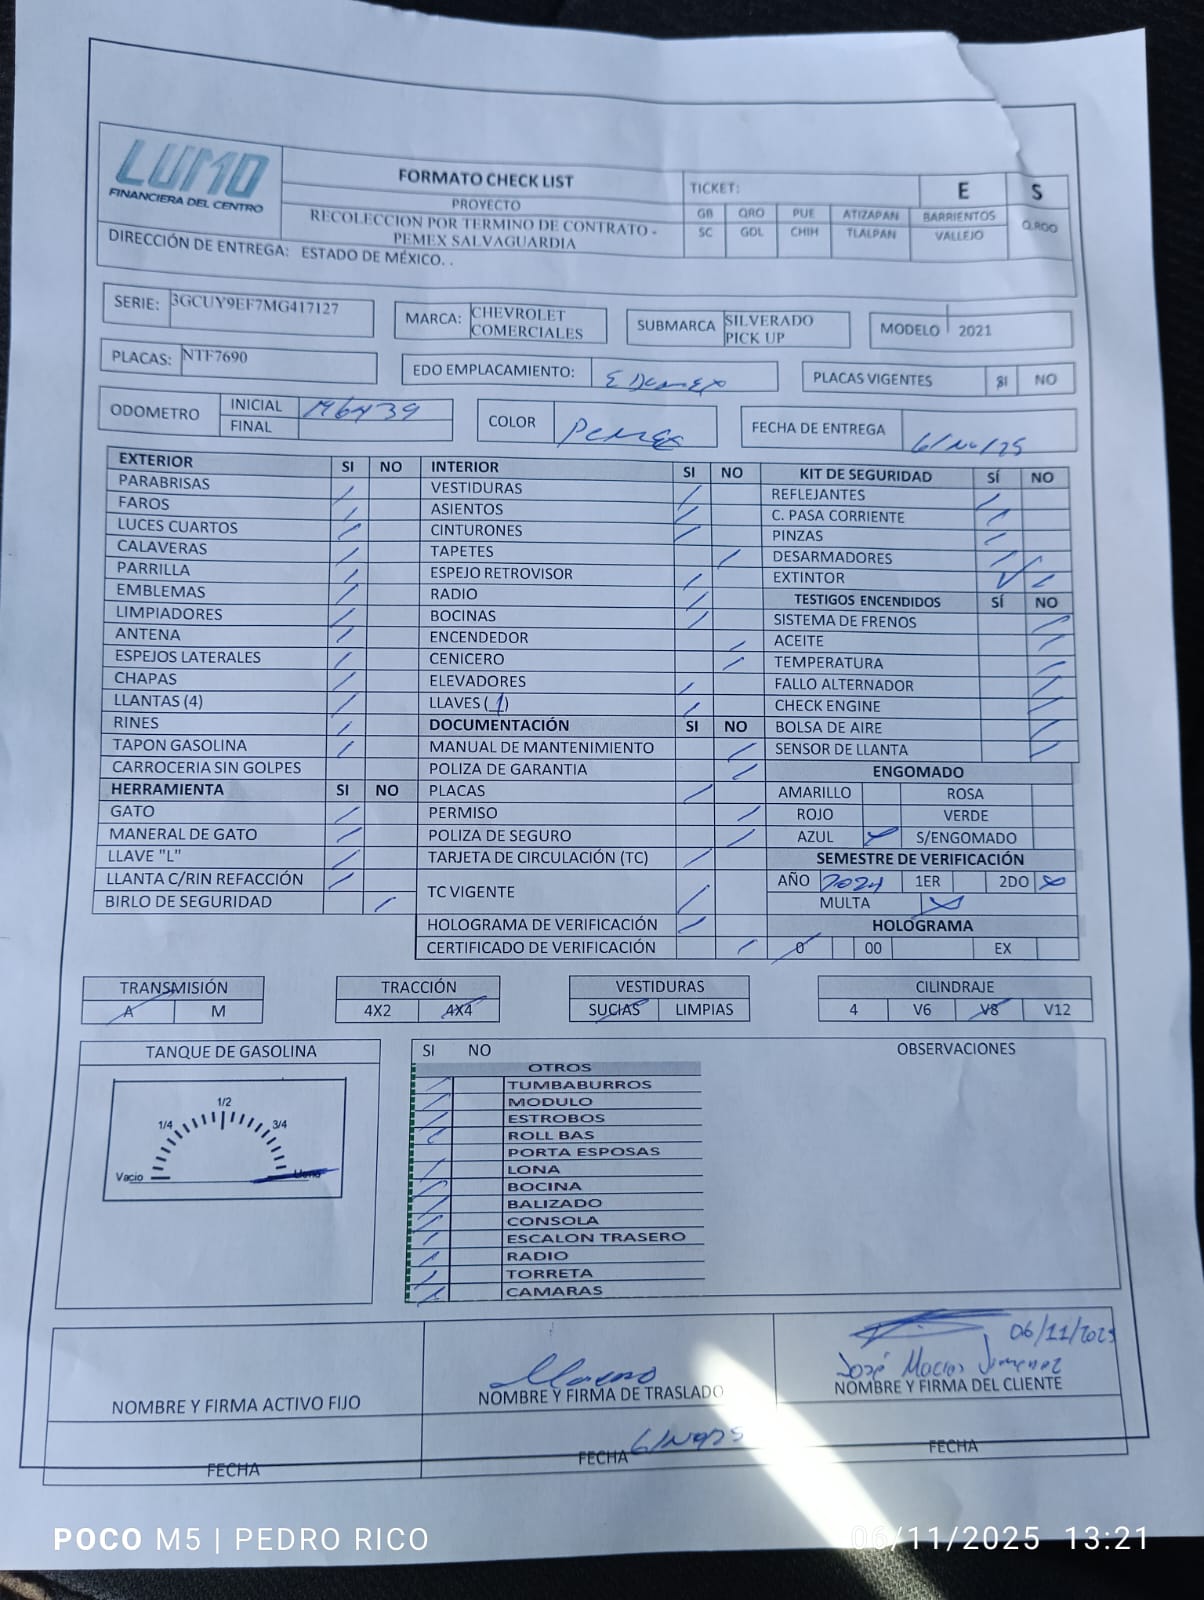 LUMO
FINANCIERA DEL CENTRO
FORMATO CHECK LIST
PROYECTO
RECOLECCION POR TERMINO DE CONTRATO -
PEMEX SALVAGUARDIA
TICKET: E S
GB QRO PUE ATIZAPAN BARRIENTOS Q.ROO
SC GDL CHIH TLALPAN VALLEJO
DIRECCIÓN DE ENTREGA: ESTADO DE MÉXICO. .
SERIE: 3GCUY9EF7MG417127
MARCA: CHEVROLET COMERCIALES
SUBMARCA SILVERADO PICK UP
MODELO 2021
PLACAS: NTF7690
EDO EMPLACAMIENTO: EDOMEX
PLACAS VIGENTES SI NO
ODOMETRO INICIAL 146439
FINAL
COLOR PEMEX
FECHA DE ENTREGA 6/No/25
EXTERIOR SI NO
PARABRISAS
FAROS
LUCES CUARTOS
CALAVERAS
PARRILLA
EMBLEMAS
LIMPIADORES
ANTENA
ESPEJOS LATERALES
CHAPAS
LLANTAS (4)
RINES
TAPON GASOLINA
CARROCERIA SIN GOLPES
HERRAMIENTA SI NO
GATO
MANERAL DE GATO
LLAVE "L"
LLANTA C/RIN REFACCIÓN
BIRLO DE SEGURIDAD
INTERIOR SI NO
VESTIDURAS
ASIENTOS
CINTURONES
TAPETES
ESPEJO RETROVISOR
RADIO
BOCINAS
ENCENDEDOR
CENICERO
ELEVADORES
LLAVES (1)
DOCUMENTACIÓN SI NO
MANUAL DE MANTENIMIENTO
POLIZA DE GARANTIA
PLACAS
PERMISO
POLIZA DE SEGURO
TARJETA DE CIRCULACIÓN (TC)
TC VIGENTE
HOLOGRAMA DE VERIFICACIÓN
CERTIFICADO DE VERIFICACIÓN
KIT DE SEGURIDAD SÍ NO
REFLEJANTES
C. PASA CORRIENTE
PINZAS
DESARMADORES
EXTINTOR
TESTIGOS ENCENDIDOS SÍ NO
SISTEMA DE FRENOS
ACEITE
TEMPERATURA
FALLO ALTERNADOR
CHECK ENGINE
BOLSA DE AIRE
SENSOR DE LLANTA
ENGOMADO
AMARILLO ROSA
ROJO VERDE
AZUL S/ENGOMADO
SEMESTRE DE VERIFICACIÓN
AÑO 2024 1ER 2DO
MULTA
HOLOGRAMA
0 00 EX
TRANSMISIÓN
A M
TRACCIÓN
4X2 4X4
VESTIDURAS
SUCIAS LIMPIAS
CILINDRAJE
4 V6 V8 V12
TANQUE DE GASOLINA
Vacio 1/4 1/2 3/4 Lleno
SI NO
OTROS
TUMBABURROS
MODULO
ESTROBOS
ROLL BAS
PORTA ESPOSAS
LONA
BOCINA
BALIZADO
CONSOLA
ESCALON TRASERO
RADIO
TORRETA
CAMARAS
OBSERVACIONES
NOMBRE Y FIRMA ACTIVO FIJO
FECHA
NOMBRE Y FIRMA DE TRASLADO
FECHA
06/11/2025
José Macias Jimenez
NOMBRE Y FIRMA DEL CLIENTE
FECHA
POCO M5 | PEDRO RICO
06/11/2025 13:21